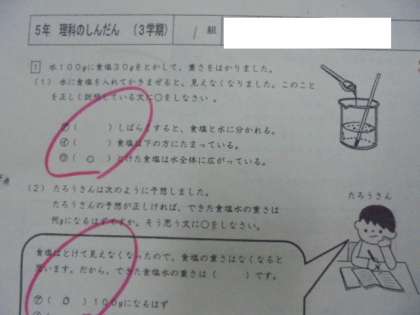 5年 理科のしんだん （3学期） 1 組
1 水100gに食塩30gをとかして、重さをはかりました。
(1) 水に食塩を入れてかきまぜると、見えなくなりました。このこと
を正しく説明している文に○をしなさい。
㋐( )しばらくすると、食塩と水に分かれる。
㋑( )食塩は下の方にたまっている。
㋒( ○ )とけた食塩は水全体に広がっている。
(2) たろうさんは次のように予想しました。
たろうさんの予想が正しければ、できた食塩水の重さは
何gになるはずですか。そう思う文に○をしなさい。
たろうさん
食塩はとけて見えなくなったので、食塩の重さはなくなると
思います。だから、できた食塩水の重さは( )です。
㋐( ○ )100gになるはず